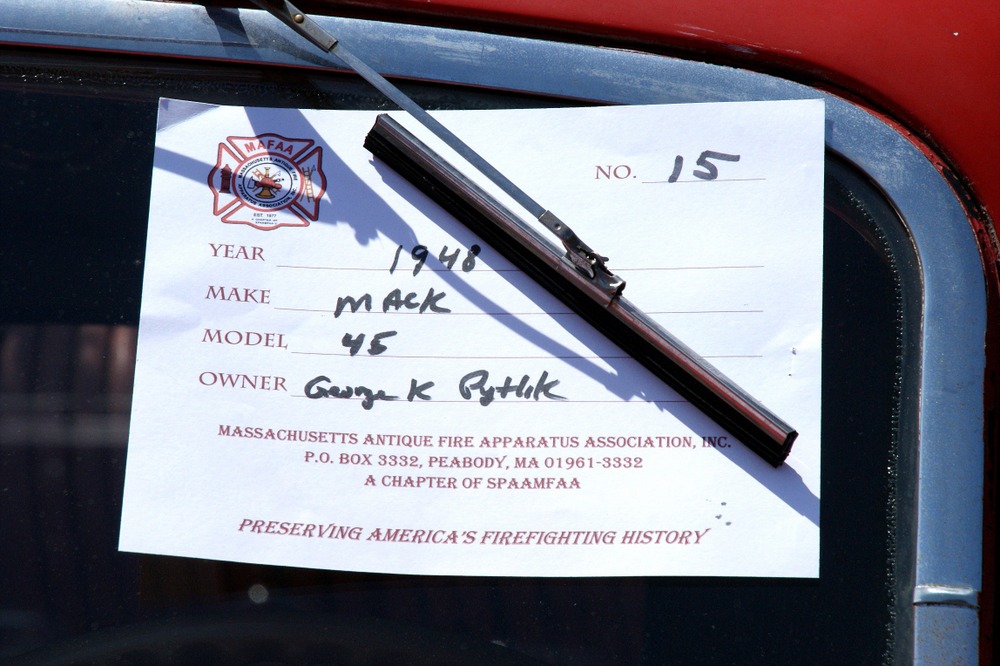 MAFAA
MASSACHUSETTS ANTIQUE FIRE
APPARATUS ASSOCIATION, INC.
EST. 1977
A CHAPTER OF
SPAAMFAA
NO. 15
YEAR 1948
MAKE MACK
MODEL 45
OWNER George K Pytlik
MASSACHUSETTS ANTIQUE FIRE APPARATUS ASSOCIATION, INC.
P.O. BOX 3332, PEABODY, MA 01961-3332
A CHAPTER OF SPAAMFAA
PRESERVING AMERICA'S FIREFIGHTING HISTORY